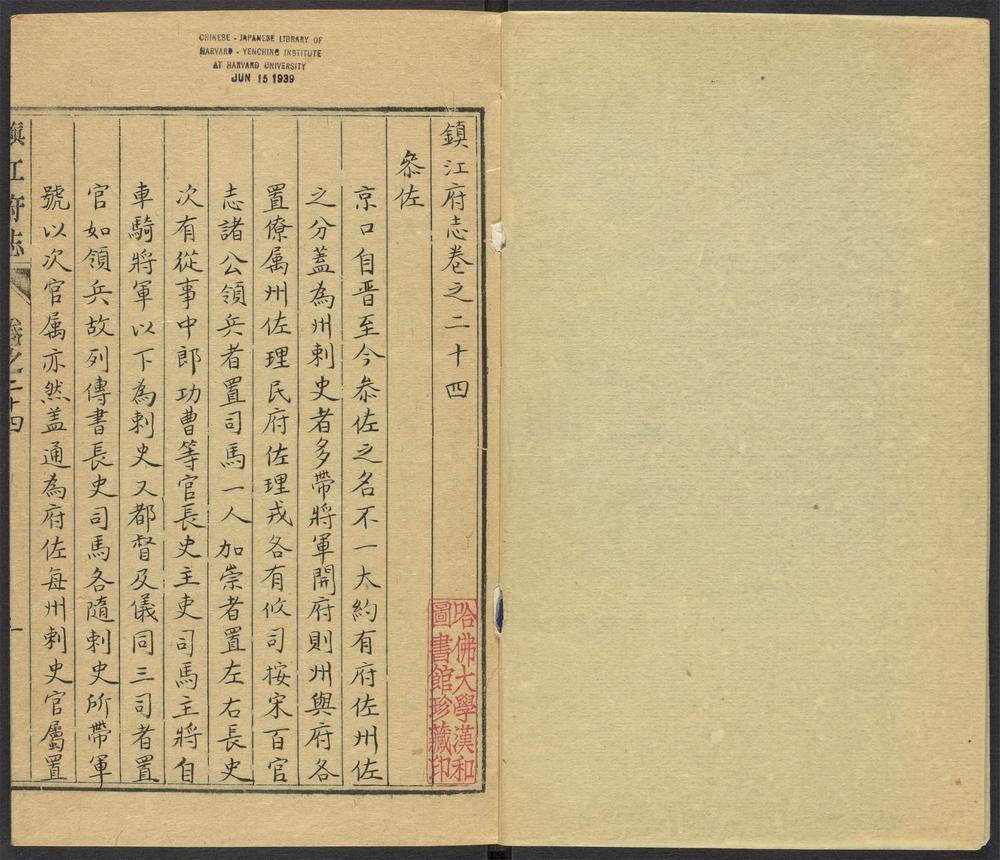 CHINESE - JAPANESE LIBRARY OF
HARVARD - YENCHING INSTITUTE
AT HARVARD UNIVERSITY
JUN 15 1939
鎮江府志卷之二十四
叅佐
京口自晋至今叅佐之名不一大約有府佐州佐
之分蓋為州刺史者多帶將軍開府則州與府各
置僚属州佐理民府佐理戎各有攸司按宋百官
志諸公領兵者置司馬一人加崇者置左右長史
次有從事中郎功曹等官長史主吏司馬主將自
車騎將軍以下為刺史又都督及儀同三司者置
官如領兵故列傳書長史司馬各隨刺史所帶軍
號以次官属亦然盖通為府佐每州刺史官屬置
鎮江府志
卷之二十四
一
哈佛大學漢和
圖書館珍藏印